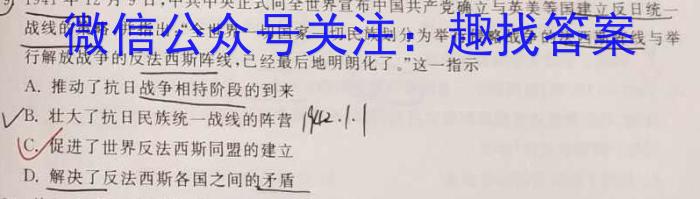 9. 1941年12月9日,中共中央正式向全世界宣布中国共产党确立与英美等国建立反日统一
战线的策略,并指出"全世界一切国家一切民族划分为举行侵略战争的法西斯阵线与举
微信公众号关注:趣找答案
行解放战争的反法西斯阵线,已经最后地明朗化了。"这一指示
A. 推动了抗日战争相持阶段的到来
B. 壮大了抗日民族统一战线的阵营 1942.1.1
C. 促进了世界反法西斯同盟的建立
D. 解决了反法西斯各国之间的矛盾